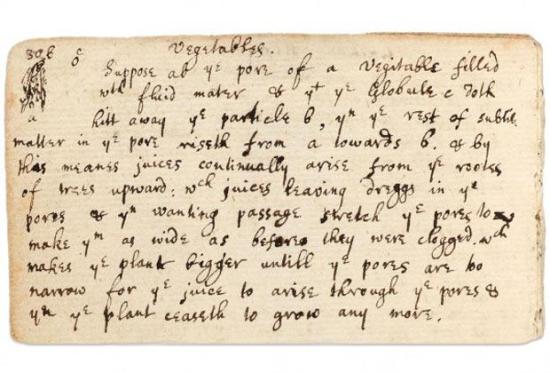 Vegetables.
Suppose ab yᵉ pore of a Vegitable filled
wᵗʰ fluid mater & yᵗ yᵉ Globule c doth
hitt away yᵉ particle b, yⁿ yᵉ rest of subtile
matter in yᵉ pore riseth from a towards b. & by
this meanes juices continually arise from yᵉ rootes
of trees upward: wᶜʰ juices leaving dreggs in yᵉ
pores & yⁿ wanting passage stretch yᵉ pores to
make yᵐ as wide as before they were clogged. wᶜʰ
makes yᵉ plant bigger untill yᵉ pores are too
narrow for yᵉ juice to arise through yᵉ pores &
yⁿ yᵉ plant ceaseth to grow any more.
a
c